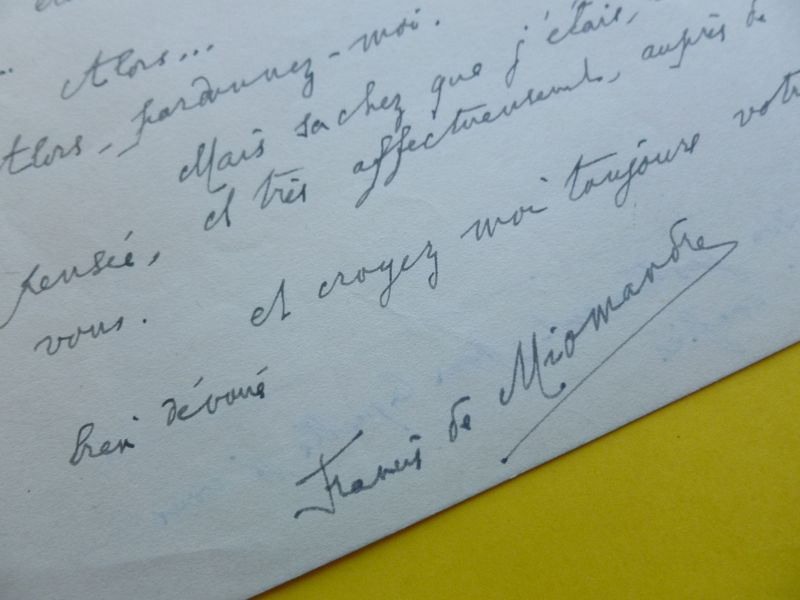 .. Alors...
Alors, pardonnez-moi.
Mais sachez que j'étais,
pensée, et très affectueusement, auprès de
vous. et croyez moi toujours votre
bien dévoué
Francis de Miomandre